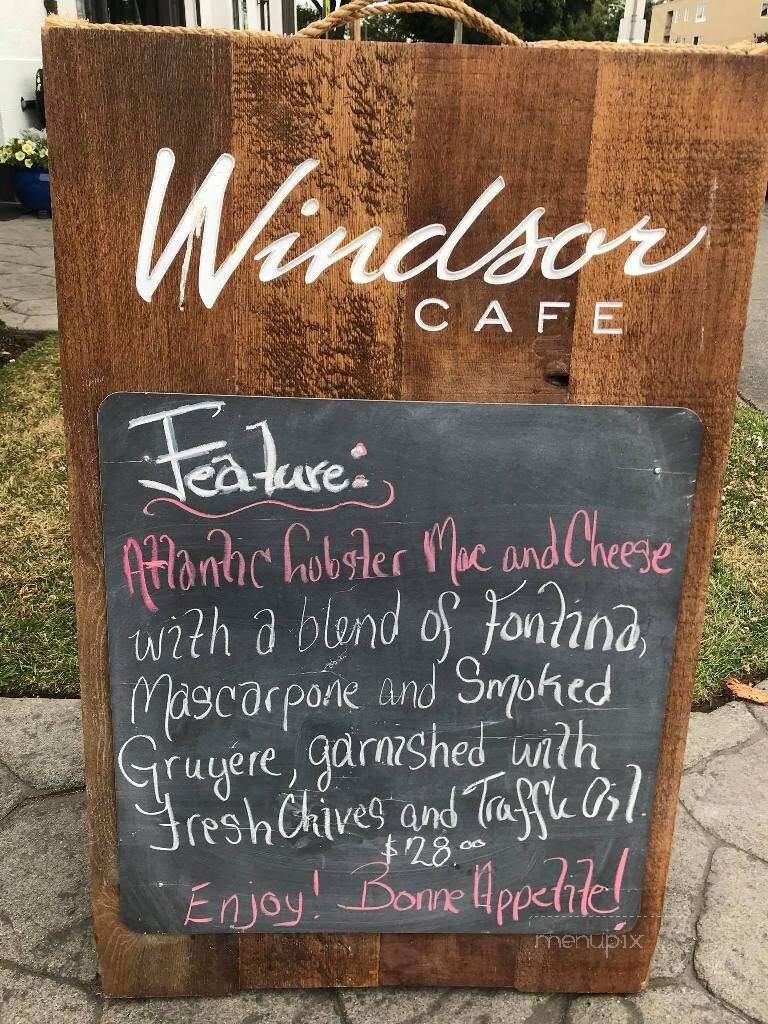 Windsor
CAFE
Feature:
Atlantic Lobster Mac and Cheese
with a blend of Fontina,
Mascarpone and Smoked
Gruyére, garnished with
Fresh Chives and Traffle Oil.
$28.00
Enjoy! Bonne Appetite!
menupix